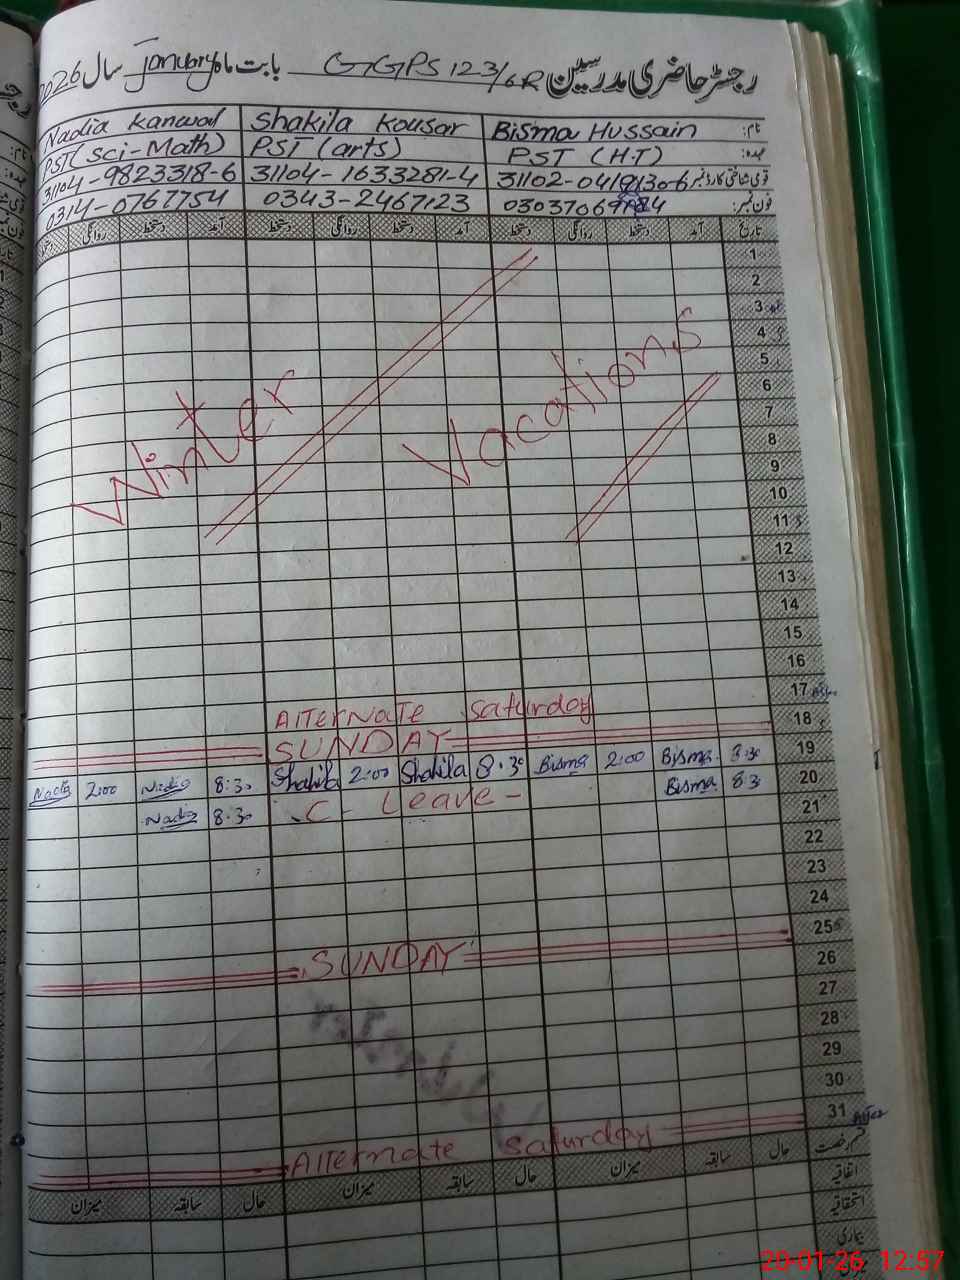 رجسٹر حاضری مدرسین GGPS 123/6R بابت ماہ January سال 2026
نام: Bisma Hussain Shakila Kousar Nadia Kanwal
عہدہ: PST (H.T) PST (arts) PST (Sci-Math)
قومی شناختی کارڈ نمبر 31104-1633281-4 31104-9823318-6
فون نمبر: 0343-2467123 0314-0767754
تاریخ آمد دستخط روانگی دستخط آمد دستخط روانگی دستخط آمد دستخط روانگی دستخط
1
2
3
4
5
6
7
8
9
10
11
12
13
14
15
16
17
Winter Vacations
18 Alternate Saturday
19 SUNDAY
20 8:30 Bisma 2:00 Bisma 8:30 Shakila 2:00 Shakila 8:30 Nadia 2:00 Nadia
21 8:30 Bisma C- Leave- 8:30 Nadia
22
23
24
25
26 SUNDAY
27
28
29
30
31
Alternate Saturday
قسم رخصت حال سابقہ میزان حال سابقہ میزان حال سابقہ میزان
اتفاقیہ
استحقاقیہ
بیماری
20-01-26 12:57